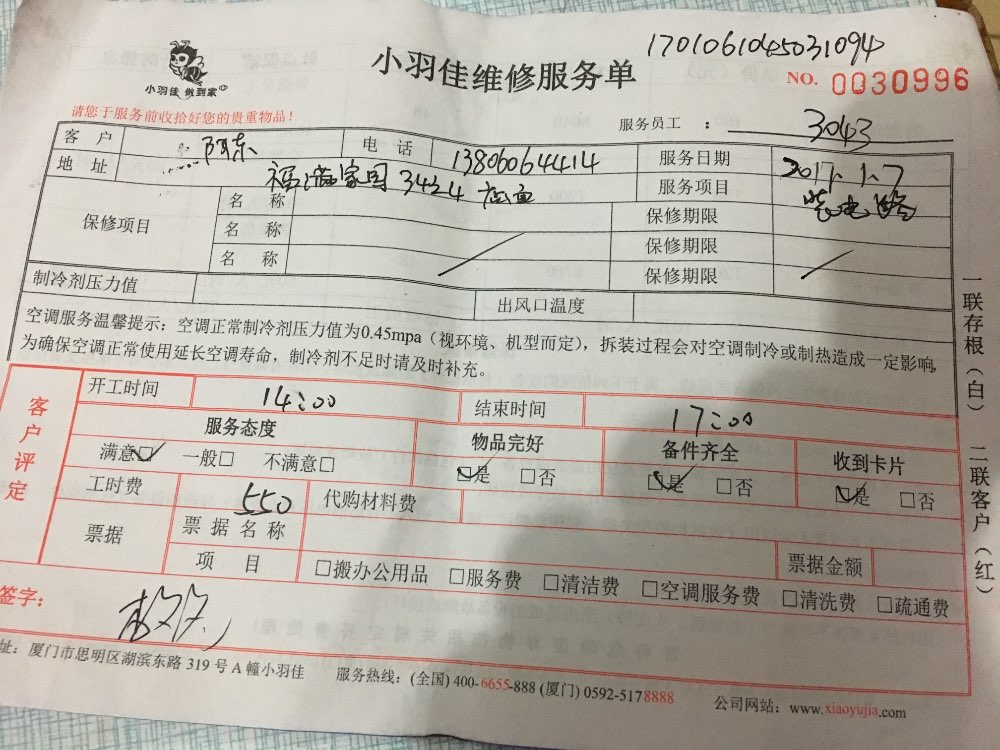 1701061045031094
小羽佳 做到家
小羽佳维修服务单
NO. 0030996
请您于服务前收拾好您的贵重物品！
服务员工 ： 3043
客 户 阿东 电 话 13860644414 服务日期 2017.1.7
地 址 福满家园 3424 店面 服务项目 装电路
保修项目 名 称 保修期限
名 称 保修期限
名 称 保修期限
制冷剂压力值 出风口温度
空调服务温馨提示：空调正常制冷剂压力值为0.45mpa（视环境、机型而定），拆装过程会对空调制冷或制热造成一定影响，
为确保空调正常使用延长空调寿命，制冷剂不足时请及时补充。
一联存根（白） 二联客户（红）
客户评定
开工时间 14:00 结束时间 17:00
服务态度 物品完好 备件齐全 收到卡片
满意☑ 一般□ 不满意□ ☑是 □否 ☑是 □否 ☑是 □否
工时费 550 代购材料费
票据 票 据 名 称 票据金额
项 目 □搬办公用品 □服务费 □清洁费 □空调服务费 □清洗费 □疏通费
签字：
址：厦门市思明区湖滨东路 319 号 A 幢小羽佳 服务热线：(全国) 400-6655-888 (厦门) 0592-5178888 公司网站：www.xiaoyujia.com